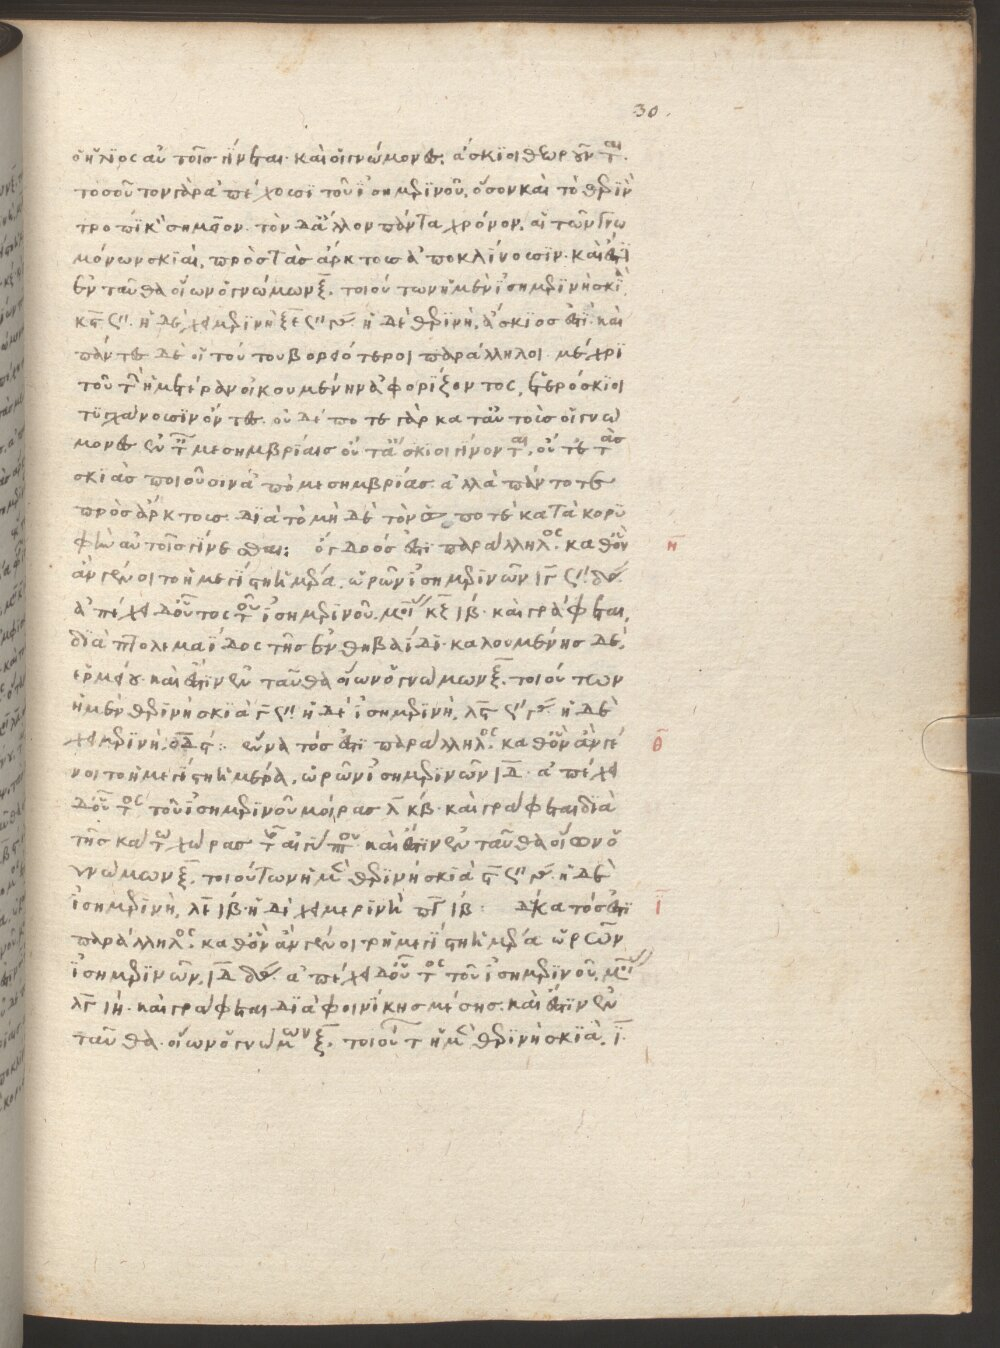 30
ὁ ἥλϊος αὐτοῖς γίνεται· καὶ οἱ γνώμονες, ἄσκϊοι θεωροῦνται.
τοσοῦτον γὰρ ἀπέχουσϊ τοῦ ἰσημρϊνοῦ, ὅσον καὶ τὸ θρϊνὸν
τροπϊκὸν σημεῖον. τὸν δὲ ἄλλον πάντα χρόνον, αἱ τῶν γνω
μόνων σκϊαὶ, πρὸς τὰς ἄρκτους ἀποκλίνουσϊν. καὶ ἐστϊ
ἐνταῦθα οἵων ὁ γνώμων ξ̅. τοιούτων ἡ μὲν ἰσημρϊνὴ σκϊὰ
κ̅ϛ ϛʹʹ. ἡ δὲ χειμρϊνὴ ξ̅ε ϛʹʹ γʹ. ἡ δὲ θρϊνὴ, ἄσκϊος ἐστϊ· καὶ
πάντες δὲ οἱ τούτου βορειότεροι παράλληλοι μέχρϊ
τοῦ τὴν ἡμετέραν οἰκουμένην ἀφορίζοντος, ἑτερόσκϊοι
τϋγχάνουσϊν ὄντες. οὐδέποτε γὰρ κατ' αὐτοὺς οἱ γνώ
μονες ἐν τ μεσημβρίαις οὔτε ἄσκιοι γίνονται, οὔτε τὰς
σκϊὰς ποιοῦσιν ἀπὸ μεσημβρίας. ἀλλὰ πάντοτε
πρὸς ἄρκτους. διὰ τὸ μὴ δὲ τὸν ☉ ποτὲ κατὰ κορϋ
φὴν αὐτοῖς γίνεσθαι: ὄγδοός ἐστι παράλληλος. καθ' ὃν
η̅
ἂν γένοιτο ἡ μεγίστη ἡμρα, ὡρῶν ἰσημρϊνῶν ιγ̅ ϛʹʹ δʹ.
ἀπέχει δ' οὗτος τοῦ ἰσημρινοῦ, μοι κ̅γ ιβ. καὶ γράφεται,
διὰ πτολεμαΐδος τῆς ἐν θηβαΐδϊ· καλουμένης δὲ,
ἑρμείου. καὶ ἔστϊν ἐνταῦθα οἵων ὁ γνώμων ξ̅. τοιούτων
ἡ μὲν θρϊνὴ σκϊὰ γ̅ ϛʹʹ ἡ δὲ ἰσημρϊνὴ, λ̅ϛ ϛʹ γʹ. ἡ δὲ
χειμρϊνὴ, ο̅δ ϛ: ἔννατός ἐστϊ παράλληλος. καθ' ὃν ἂν γέ
θ̅
νοιτο ἡ μεγίστη ἡμέρα, ὡρῶν ἰσημρϊνῶν ι̅δ. ἀπέχει
δ' οὗτος τοῦ ἰσημρϊνοῦ μοίρας λ̅ κβ. καὶ γράφεται διὰ
τῆς κάτω χώρας τ αἰγύπτου καὶ ἔστϊν ἐνταῦθα οἵων ὁ
γνώμων ξ̅. τοιούτων ἡ μὲν θρϊνὴ σκϊὰ ϛ̅ ϛʹʹ γʹ. ἡ δὲ
ἰσημρϊνὴ, λ̅ε ιβ. ἡ δὲ χειμερϊνὴ π̅γ ιβ: δέκατός ἐστϊ
ι̅
παράλληλος. καθ' ὃν ἂν γένοιτο ἡ μεγίστη ἡμρα ὡρῶν
ἰσημρϊνῶν, ι̅δ δʹ. ἀπέχει δ' οὗτος τοῦ ἰσημρϊνοῦ, μοι
λ̅γ ιη. καὶ γράφεται διὰ φοινίκης μέσης. καὶ ἔστϊν ἐν
ταῦθα. οἵων ὁ γνώμων ξ̅. τοιούτ ἡ μὲν θρϊνὴ σκϊὰ, ι̅.